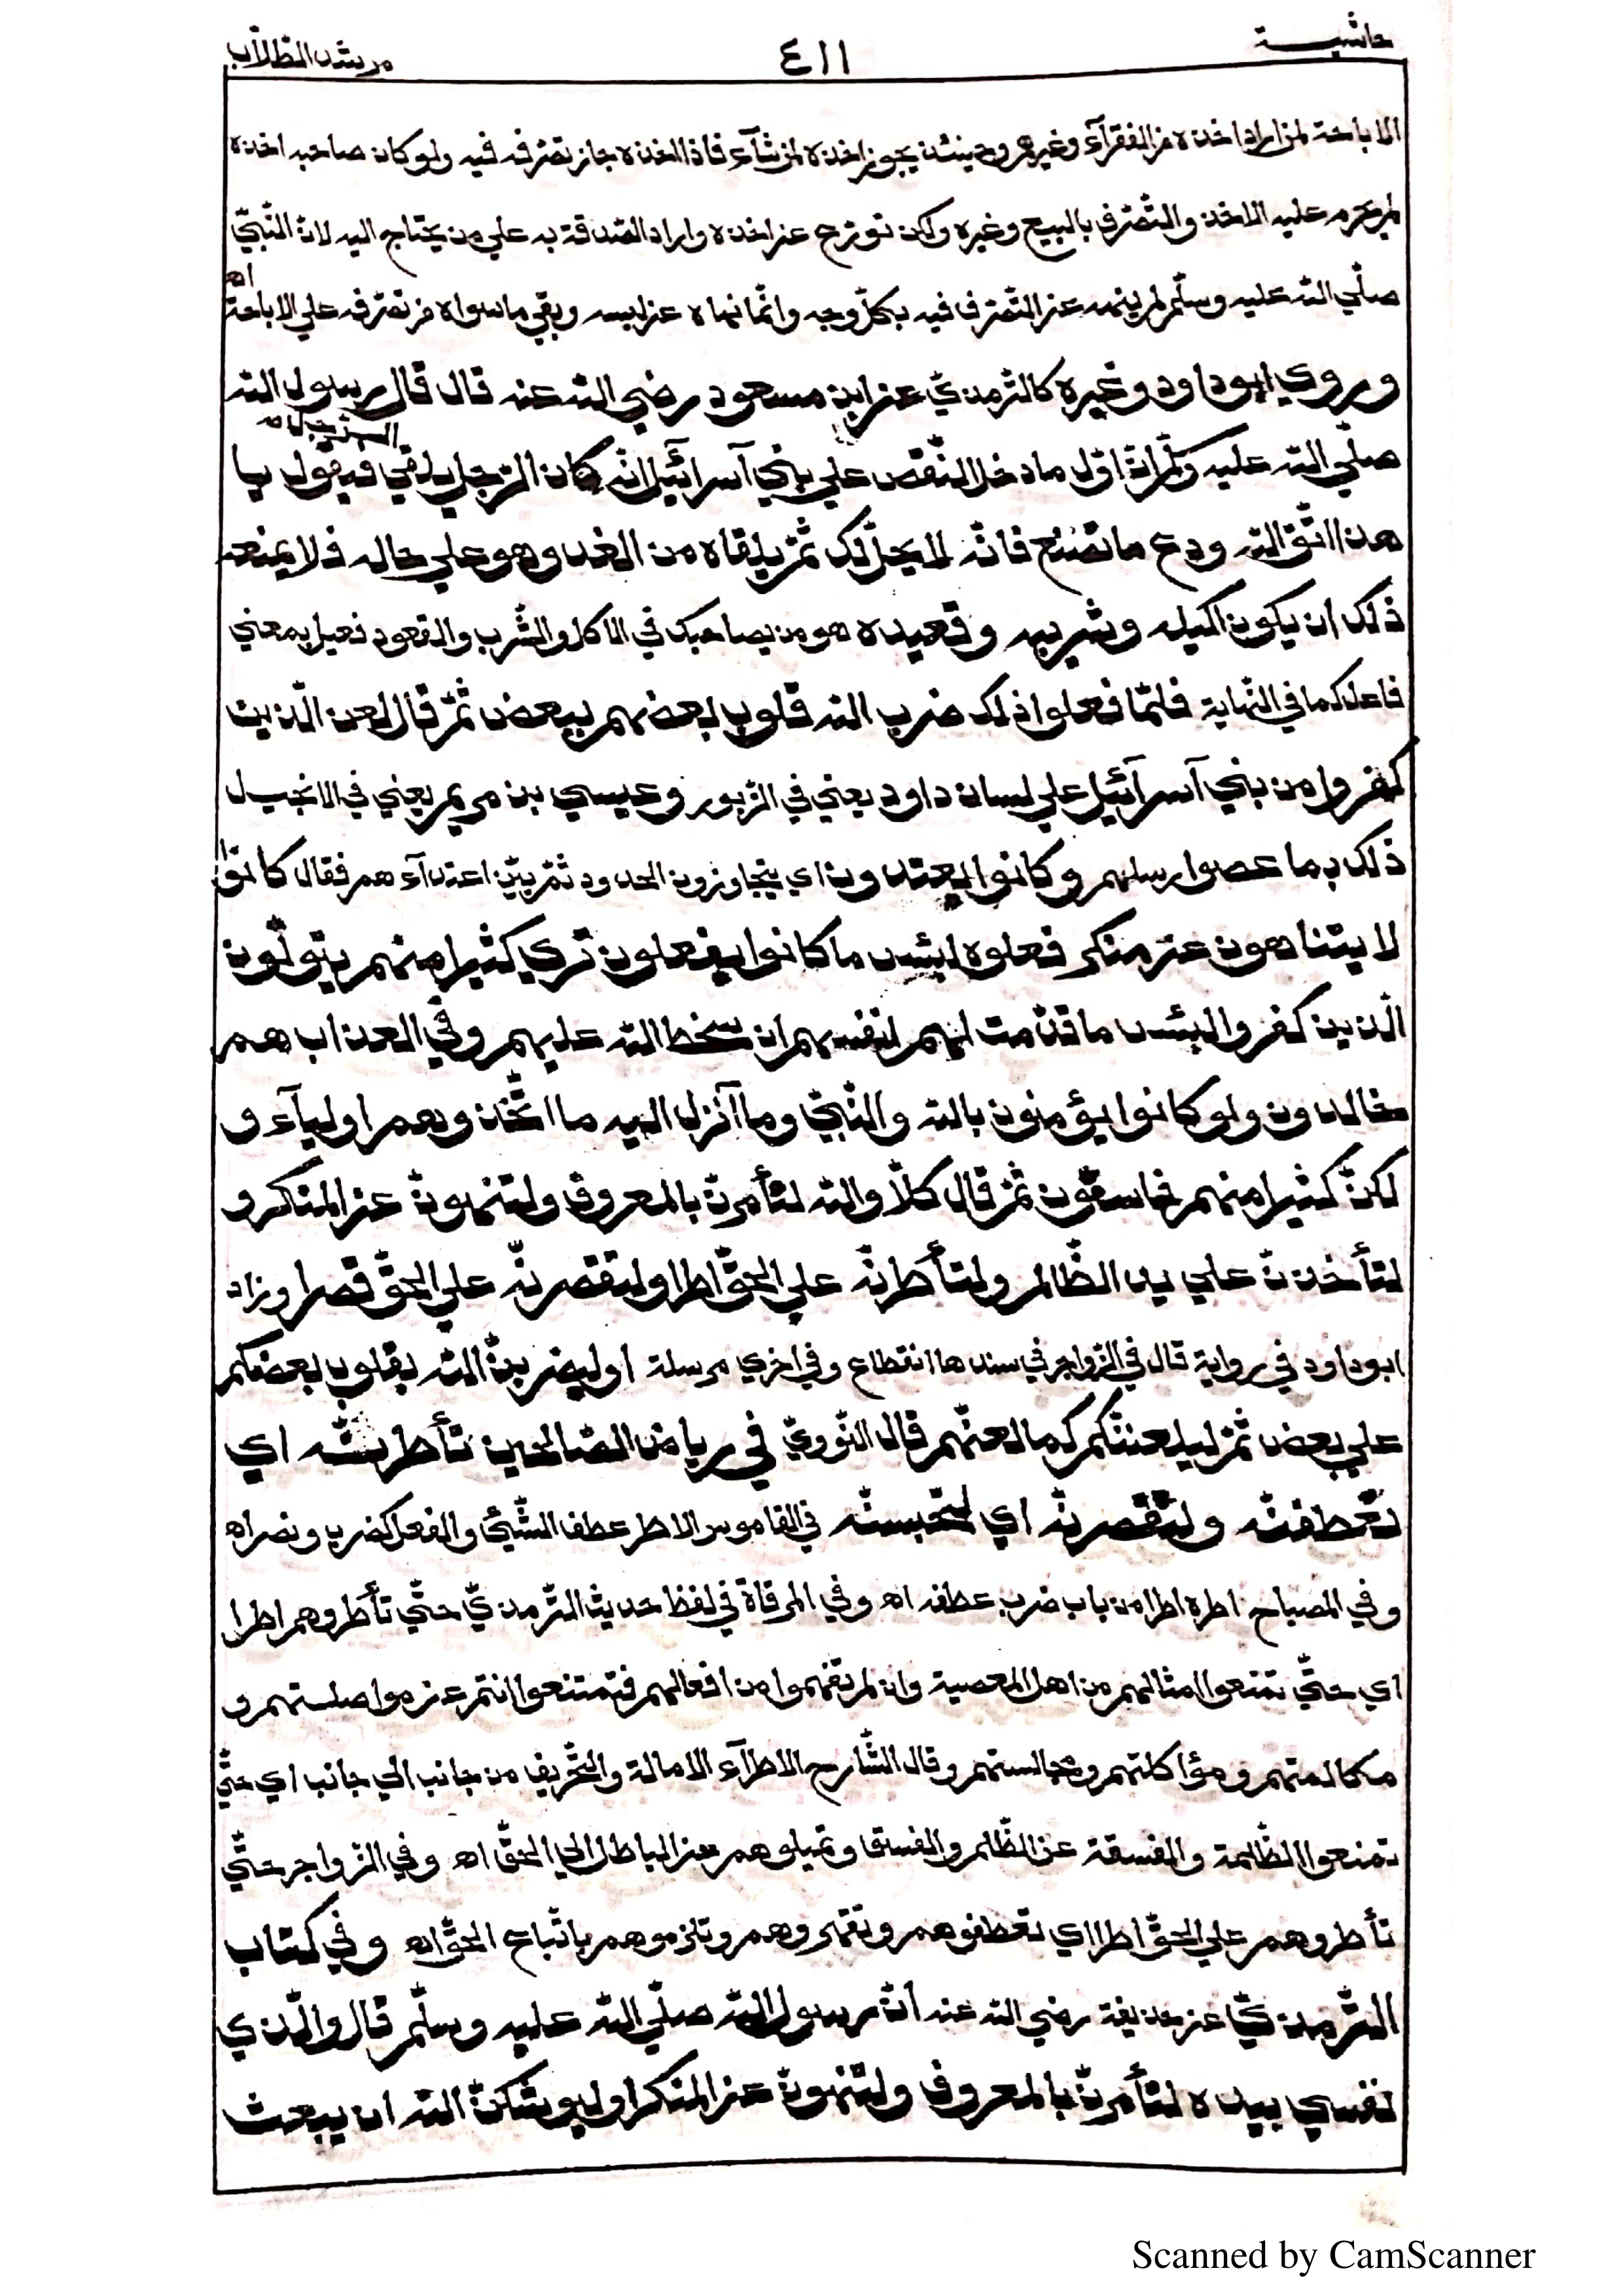 حاشيـــة
٤١١
مرشد الطلّاب
الاباحة لمن اراد اخذه من الفقرآء وغيرهم وحينئذ يجوز اخذه لمن شآء فاذا اخذه جاز تصرفه فيه ولو كان صاحبه اخذه
لم يحرم عليه الاخذ والتّصرف بالبيع وغيره ولكن تورّع عن اخذه واراد الصّدقة به علي من يحتاج اليه لانّ النّبيّ
صلّي اللّه عليه وسلّم لم ينهه عن التّصرّف فيه بكلّ وجه وانّما نهاه عن لبسه وبقي ما سواه من تصرّفه علي الاباحة اه
وروي ابوداود وغيره كالتّرمذيّ عن ابن مسعود رضي اللّه عنه قال قال رسول اللّه
صلّي اللّه عليه وسلّم انّ اوّل ما دخل النّقص علي بني آسرآئيل انّه كان الرّجل يلقي الرّجل فيقول يا
هذا اتّق اللّه ودع ما تصنع فانّه لا يحلّ لك ثمّ يلقاه من الغد وهو علي حاله فلا يمنعه
ذٰلك ان يكون اكيله وشريبه وقعيده هو من يصاحبك في الاكل والشّرب والقعود فعيل بمعني
فاعل كما في النّهاية فلمّا فعلوا ذلك ضرب اللّه قلوب بعضهم ببعض ثمّ قال لعن الّذين
كفروا من بني آسرآئيل علي لسان داود يعني في الزّبور وعيسي بن مريم يعني في الانجيل
ذٰلك بما عصوا رسلهم وكانوا يعتدون اي يتجاوزون الحدود ثمّ بيّن اعتدآءهم فقال كانوا
لا يتناهون عن منكر فعلوه لبئس ما كانوا يفعلون تري كثيرا منهم يتولّون
الّذين كفروا لبئس ما قدّمت لهم انفسهم ان سخط اللّه عليهم وفي العذاب هم
خالدون ولو كانوا يؤمنون باللّه والنّبيّ وما آنزل اليه ما اتّخذوهم اوليآء و
لكنّ كثيرا منهم فاسقون ثمّ قال كلّا واللّه لتأمرنّ بالمعروف ولتنهونّ عن المنكر و
لتأخذنّ علي يد الظّالم ولتأطرنّه علي الحقّ اطرا ولتقصرنّه علي الحقّ قصرا وزاد
ابوداود في رواية قال في الزّواجر في سندها انقطاع وفي اخري مرسلة او ليضربنّ اللّه بقلوب بعضكم
علي بعض ثمّ ليلعننّكم كما لعنهم قال النّوويّ في رياض الصّالحين تأطرنّه اي
تعطفنّه ولتقصرنّه اي لتحبسنّه في القاموس الاطر عطف الشّيئ والفعل كضرب ونصر اه
وفي المصباح اطره اطرا من باب ضرب عطفه اه وفي المرقاة في لفظ حديث التّرمذيّ حتّي تأطروهم اطرا
اي حتّي تمنعوا امثالهم من اهل المعصية وان لم تمنعوا من افعالهم فتمتنعوا انتم عن مواصلتهم و
مكالمتهم ومؤاكلتهم ومجالستهم وقال الشّارح الاطرآء الامالة والتّحريف من جانب الي جانب اي حتّي
تمنعوا الظّالمة والفسقة عن الظّلم والفسق وتميلوهم عن الباطل الي الحقّ اه وفي الزّواجر حتّي
تأطروهم علي الحقّ اطرا اي تعطفوهم وتقهروهم وتلزموهم باتّباع الحقّ اه وفي كتاب
التّرمذيّ عن حذيفة رضي اللّه عنه انّ رسول اللّه صلّي اللّه عليه وسلّم قال والّذي
نفسي بيده لتأمرنّ بالمعروف ولتنهونّ عن المنكر او ليوشكنّ اللّه ان يبعث
Scanned by CamScanner